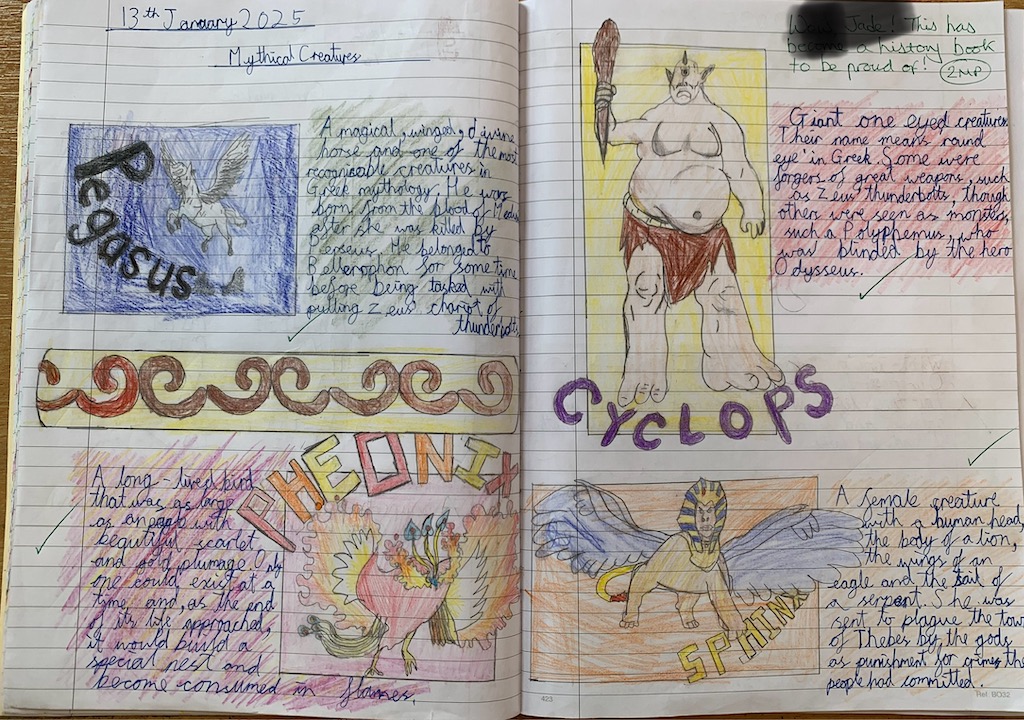 13th January 2025
Mythical Creatures
Pegasus
A magical, winged, divine
horse and one of the most
recognisable creatures in
Greek mythology. He was
born from the blood of Medusa
after she was killed by
Perseus. He belonged to
Bellerophon for some time
before being tasked with
pulling Zeus' chariot of
thunderbolts.
PHEONIX
A long-lived bird
that was as large
as an eagle with
beautiful scarlet
and gold plumage. Only
one could exist at a
time and, as the end
of its life approached,
it would build a
special nest and
become consumed in flames.
Jade! This has
become a history book
to be proud of!
2MP
CYCLOPS
Giant one eyed creatures.
Their name means 'round
eye' in Greek. Some were
forgers of great weapons, such
as Zeus' thunderbolts, though
others were seen as monsters,
such a Polyphemus, who
was blinded by the hero
Odysseus.
SPHINX
A female creature
with a human head,
the body of a lion,
the wings of an
eagle and the tail of
a serpent. She was
sent to plague the town
of Thebes by the gods
as punishment for crimes the
people had committed.
423
Ref: BO32